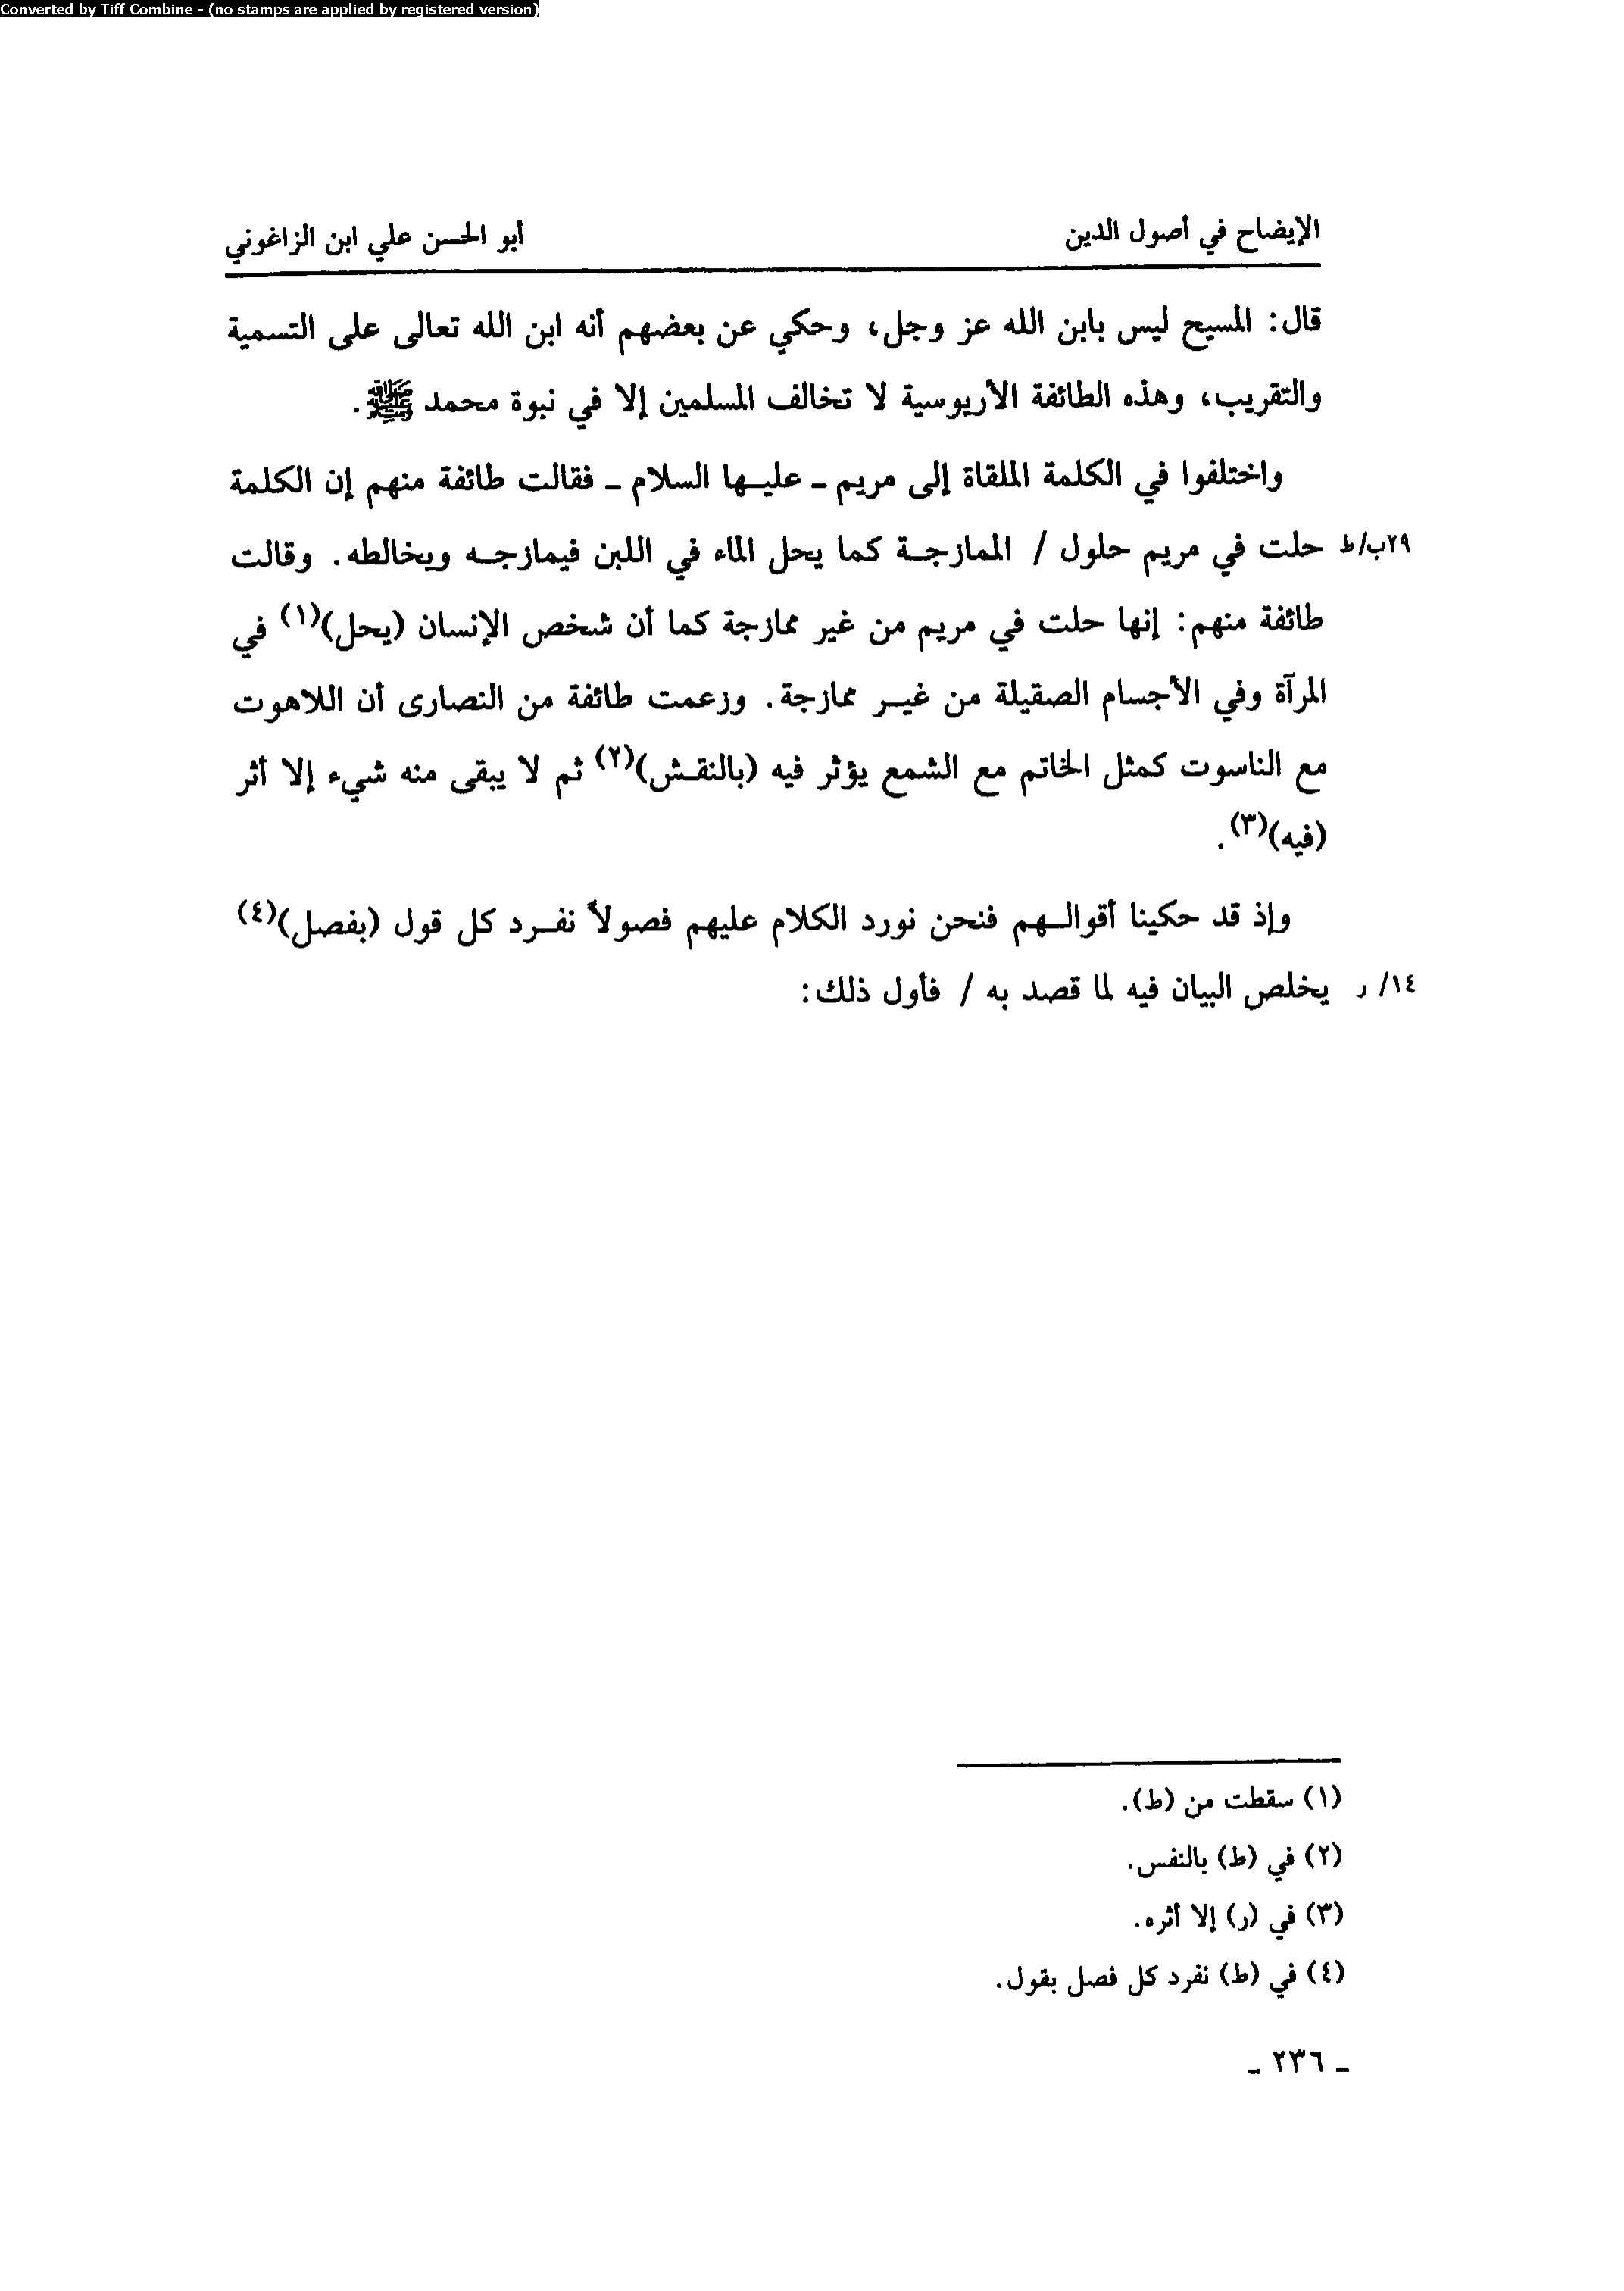 Converted by Tiff Combine - (no stamps are applied by registered version)
الإيضاح في أصول الدين أبو الحسن علي ابن الزاغوني
قال: المسيح ليس بابن الله عز وجل، وحكي عن بعضهم أنه ابن الله تعالى على التسمية
والتقريب، وهذه الطائفة الأريوسية لا تخالف المسلمين إلا في نبوة محمد ﷺ.
واختلفوا في الكلمة الملقاة إلى مريم ـ عليـها السلام ـ فقالت طائفة منهم إن الكلمة
٢٩ب/ط حلت في مريم حلول / الممازجـة كما يحل الماء في اللبن فيمازجـه ويخالطه. وقالت
طائفة منهم: إنها حلت في مريم من غير ممازجة كما أن شخص الإنسان (يحل)(١) في
المرآة وفي الأجسام الصقيلة من غيـر ممازجة. وزعمت طائفة من النصارى أن اللاهوت
مع الناسوت كمثل الخاتم مع الشمع يؤثر فيه (بالنقـش)(٢) ثم لا يبقى منه شيء إلا أثر
(فيه)(٣).
وإذ قد حكينا أقوالـهم فنحن نورد الكلام عليهم فصولاً نفـرد كل قول (بفصل)(٤)
١٤/ ر يخلص البيان فيه لما قصد به / فأول ذلك:
(١) سقطت من (ط).
(٢) في (ط) بالنفس.
(٣) في (ر) إلا أثره.
(٤) في (ط) نفرد كل فصل بقول.
ـ ٢٣٦ ـ